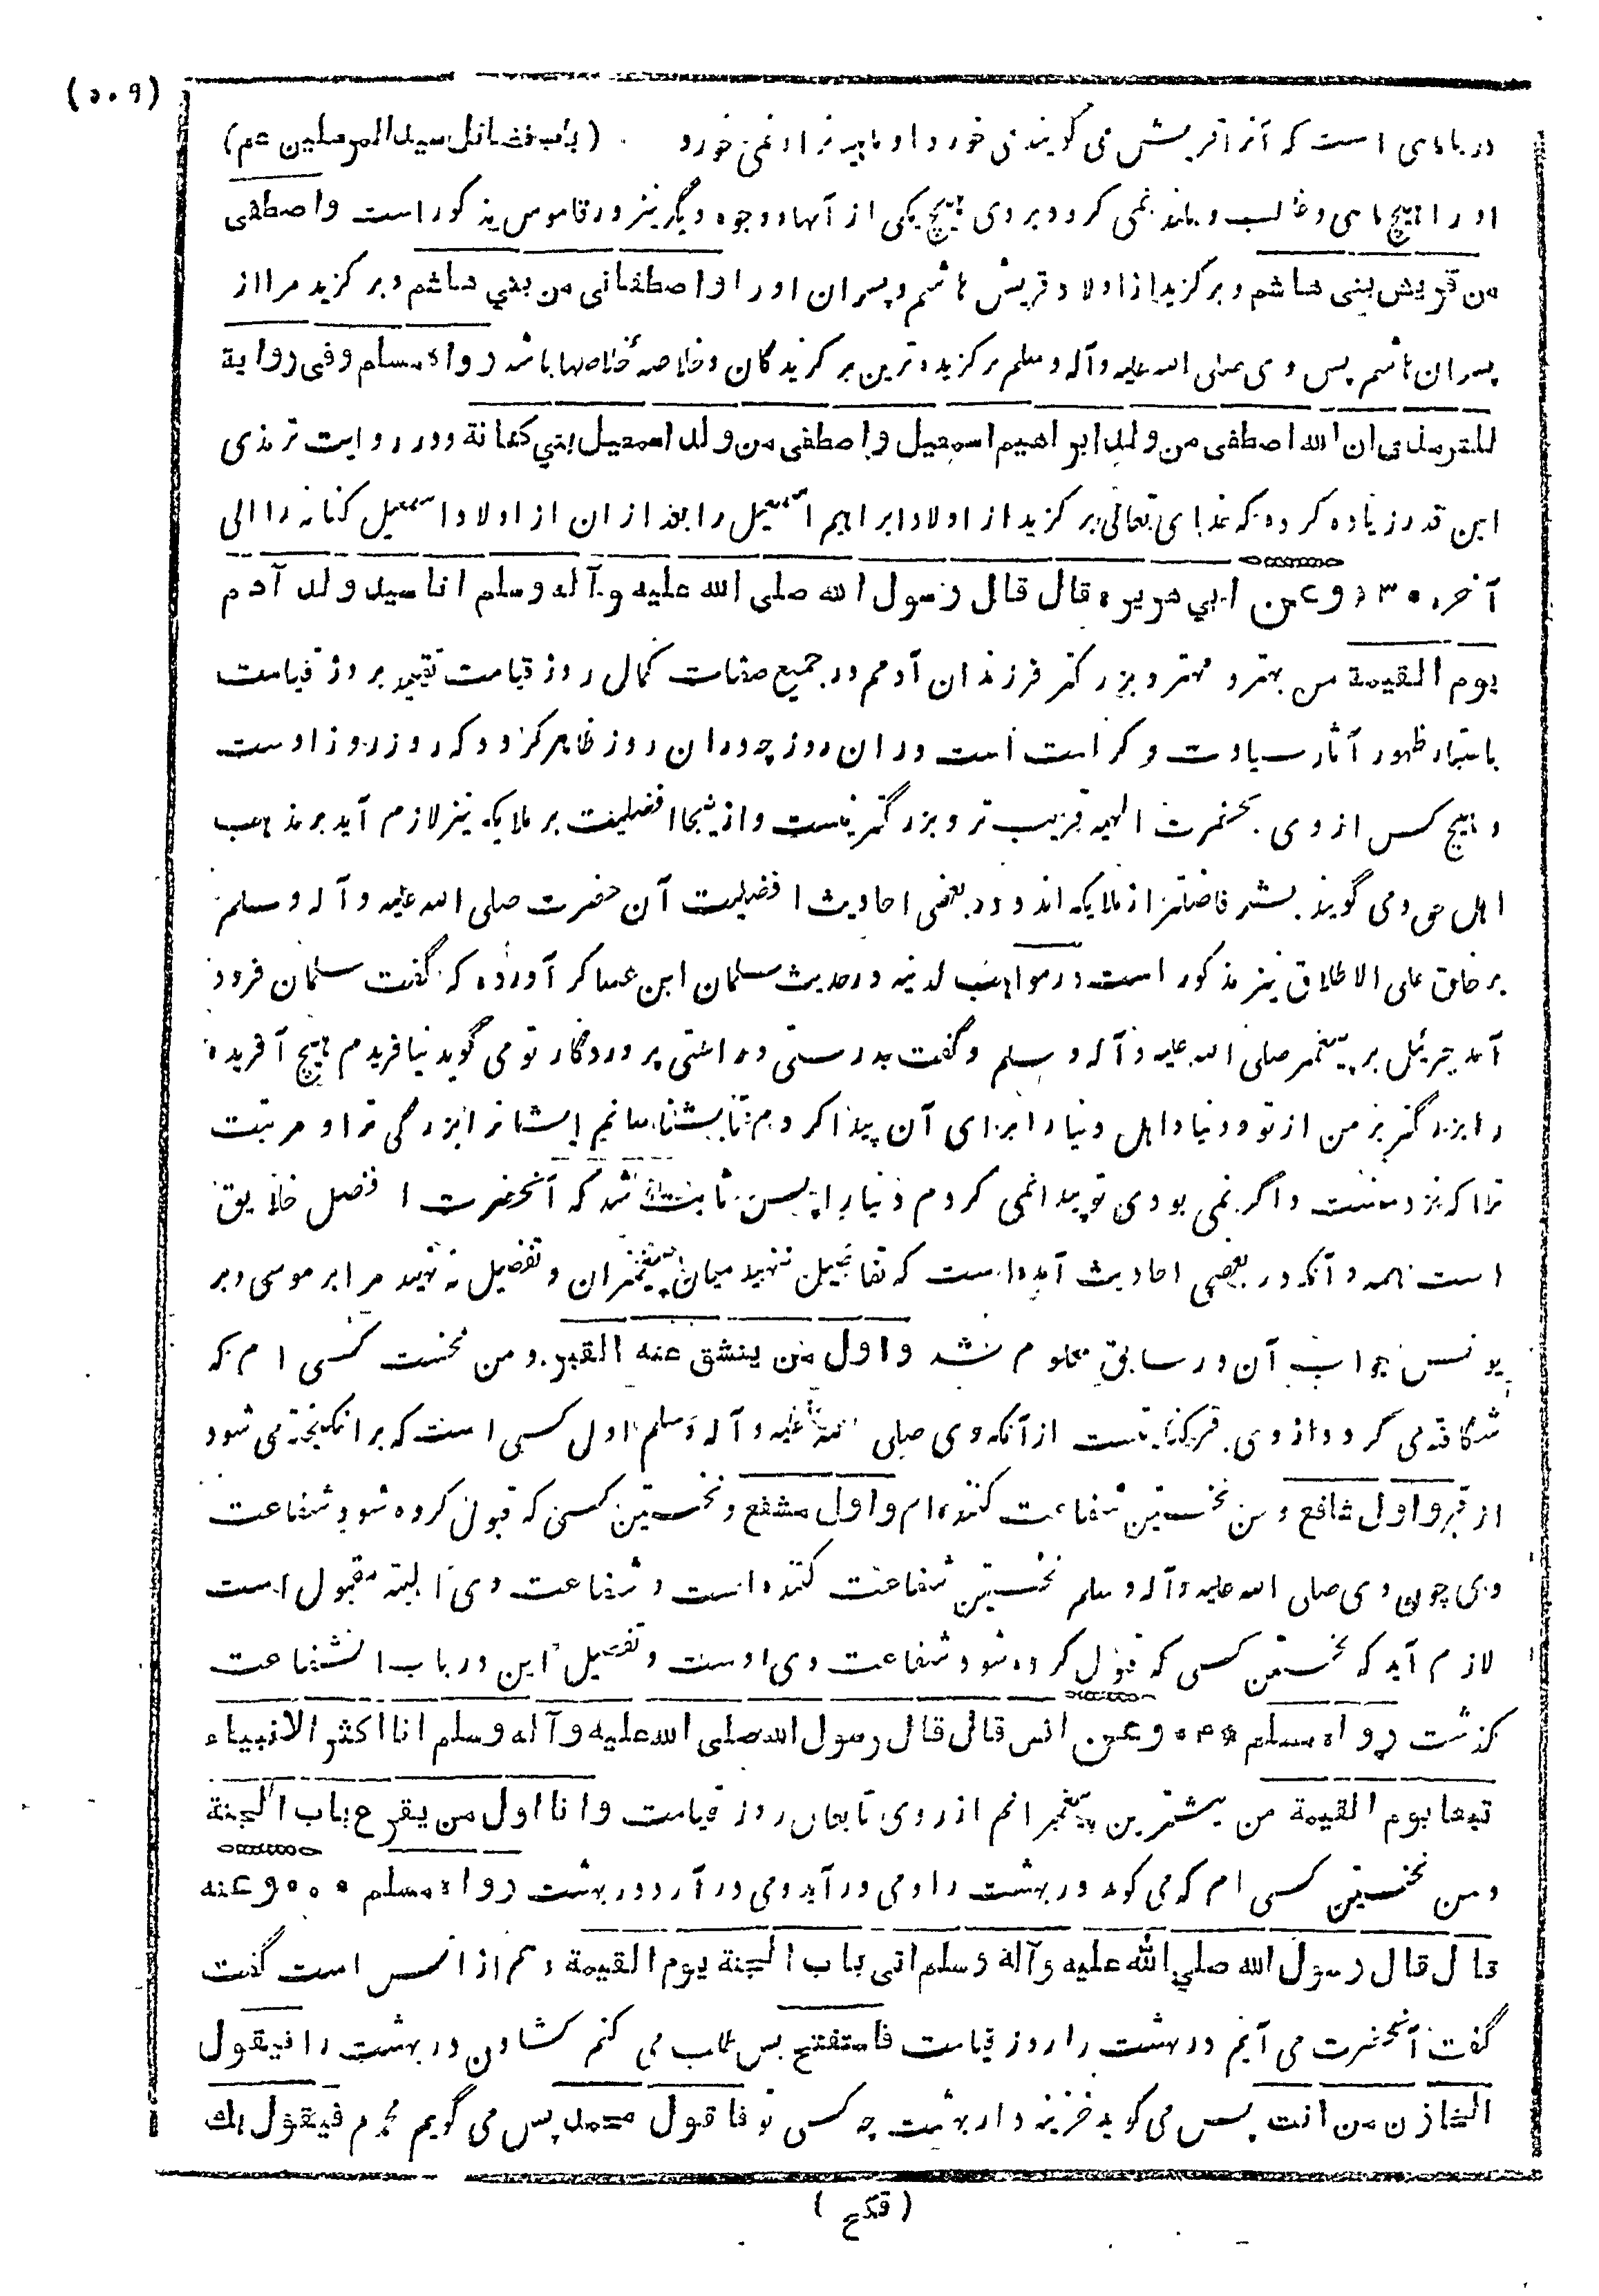 (٥٠٩)
دریا ماهی است که آنرا قریش می گویند می خورد او ماهیانرا و نمی خورد (باب فضائل سيد المرسلين عم)
او را هیچ ماهی و غالب و بلند نمی گردد بر وی هیچ یکی از آنها و وجوه دیگر نیز در قاموس مذکور است واصطفى
من قريش بنى هاشم و برگزید از اولاد قریش هاشم و پسران او را واصطفانى من بني هاشم و برگزید مرا از
پسران هاشم پس وی صلی الله علیه وآله وسلم برگزیده ترین برگزیدگان و خلاصه خلاصها باشد رواه مسلم وفى رواية
للترمذى ان الله اصطفى من ولد ابراهيم اسمعيل واصطفى من ولد اسمعيل بني كنانة و در روایت ترمذی
این قدر زیاده کرده که خدای تعالی برگزید از اولاد ابراهیم اسمعیل را بعد ازان از اولاد اسمعیل کنانه را الی
آخره ٣ وعن ابي هريرة قال قال رسول الله صلى الله عليه وآله وسلم انا سيد ولد آدم
يوم القيمة من بهتر و مهتر و بزرگتر فرزندان آدمم در جمیع صفات کمال روز قیامت تقیید بروز قیامت
باعتبار ظهور آثار سیادت و کرامت است دران روز چه دران روز ظاهر گردد که روز روز اوست
و هیچ کس از وی بحضرت الهیه قریب تر و بزرگتر نیست و ازینجا افضلیت بر ملایکه نیز لازم آید بر مذهب
اهل حق و می گویند بشر فاضلتر از ملایکه اند و در بعضی احادیث افضلیت آن حضرت صلی الله علیه وآله وسلم
بر خلق علی الاطلاق نیز مذکور است در مواهب لدنیه در حدیث سلمان ابن عساکر آورده که گفت سلمان فرود
آمد جبرئیل بر پیغمبر صلی الله علیه وآله وسلم و گفت بدرستی و راستی پروردگار تو می گوید نیافریدم هیچ آفریده
را بزرگتر بر من از تو و دنیا و اهل دنیا را برای آن پیدا کردم تا بشناسانم ایشانرا بزرگی ترا و مرتبت
ترا که نزد منست و اگر نمی بودی تو پیدا نمی کردم دنیا را پس ثابت شد که آنحضرت افضل خلایق
است همه و آنکه در بعضی احادیث آمده است که تفاضیل ننهید میان پیغمبران و تفضیل ننهید مرا بر موسی و بر
یونس جواب آن در سابق معلوم شد واول من ينشق عنه القبر و من نخست کسی ام که
شگافته می گردد از وی قبر کنایتست از آنکه وی صلی الله علیه وآله وسلم اول کسی است که برانگیخته می شود
از قبر واول شافع و من نخستین شفاعت کننده ام واول مشفع و نخستین کسی که قبول کرده شود شفاعت
وی چون وی صلی الله علیه وآله وسلم نخستین شفاعت کننده است و شفاعت وی البته مقبول است
لازم آید که نخستین کسی که قبول کرده شود شفاعت وی اوست و تفصیل این در باب الشفاعت
گذشت رواه مسلم ٤ وعن انس قال قال رسول الله صلى الله عليه وآله وسلم انا اكثر الانبياء
تبعا يوم القيمة من بیشترین پیغمبرانم از روی تابعان روز قیامت وانا اول من يقرع باب الجنة
و من نخستین کسی ام که می کوبد در بهشت را و می درآید و می درآرد در بهشت رواه مسلم ٥ وعنه
قال قال رسول الله صلي الله عليه وآله وسلم اتى باب الجنة يوم القيمة و هم از انس است گفت
گفت آنحضرت می آیم در بهشت را روز قیامت فاستفتح پس طلب می کنم کشادن در بهشت را فيقول
الخازن من انت پس می گوید خزینه دار بهشت چه کسی تو فاقول محمد پس می گویم محمدم فيقول بك